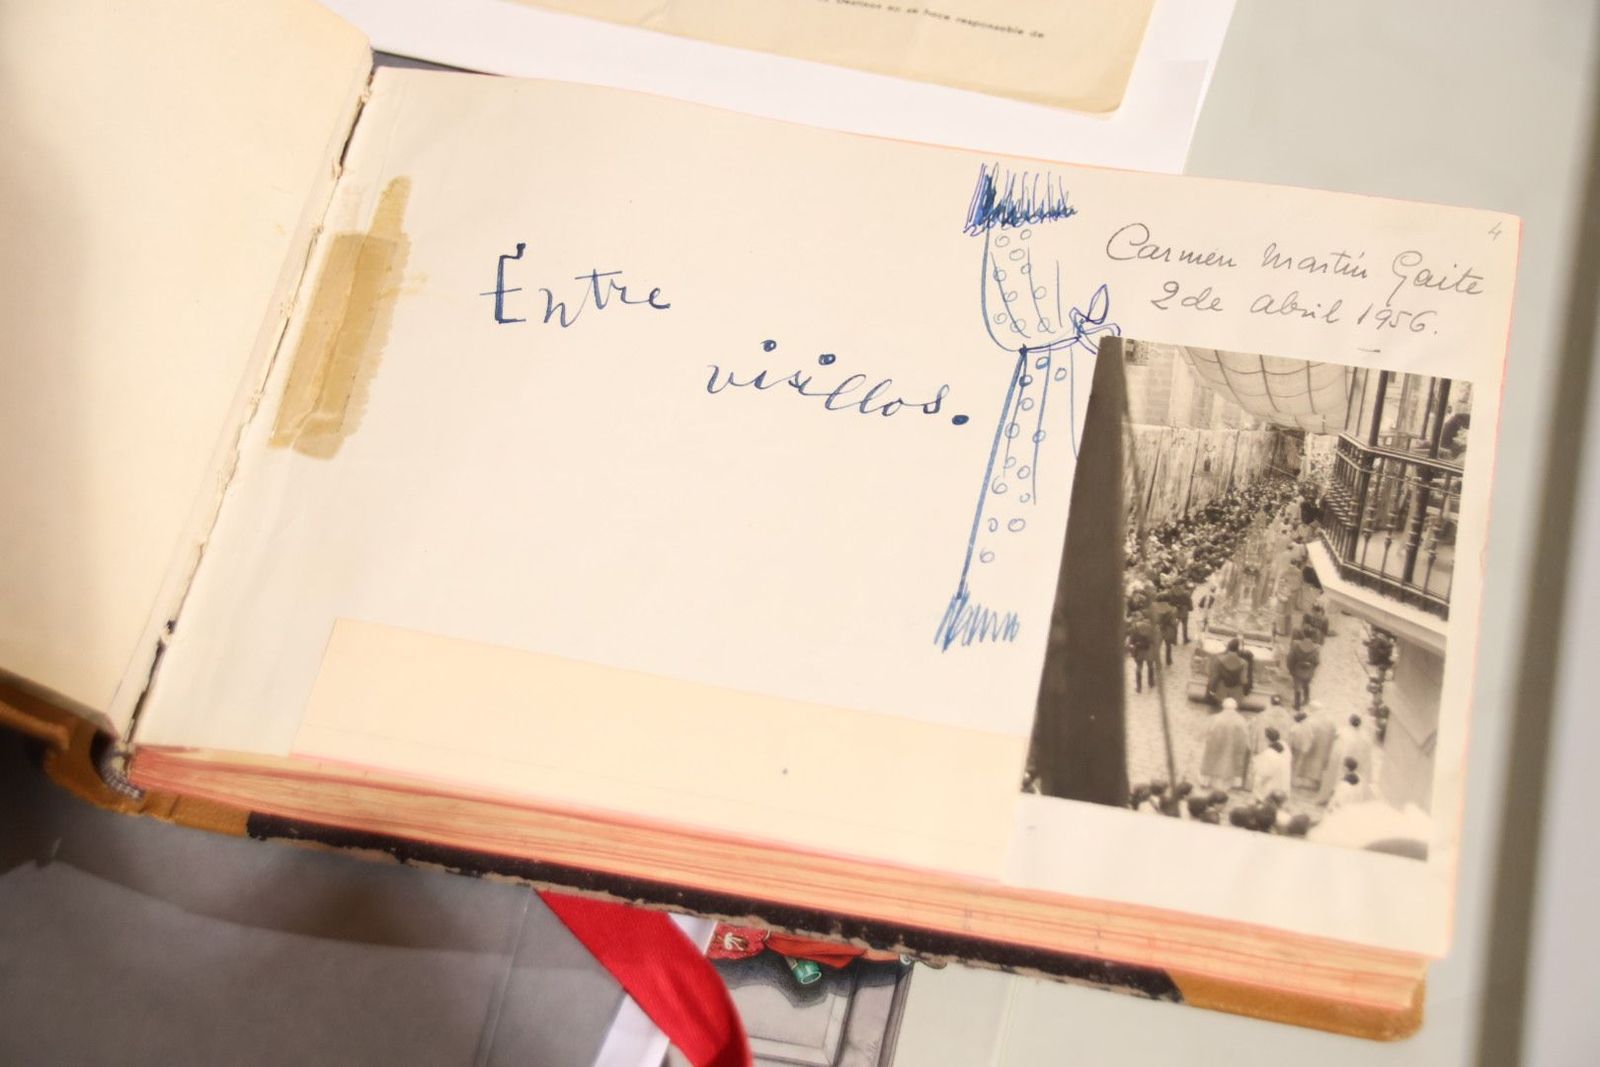 Destinos en se hace responsable de
4
Carmen Martín Gaite
2 de abril 1956.
Entre
visillos.